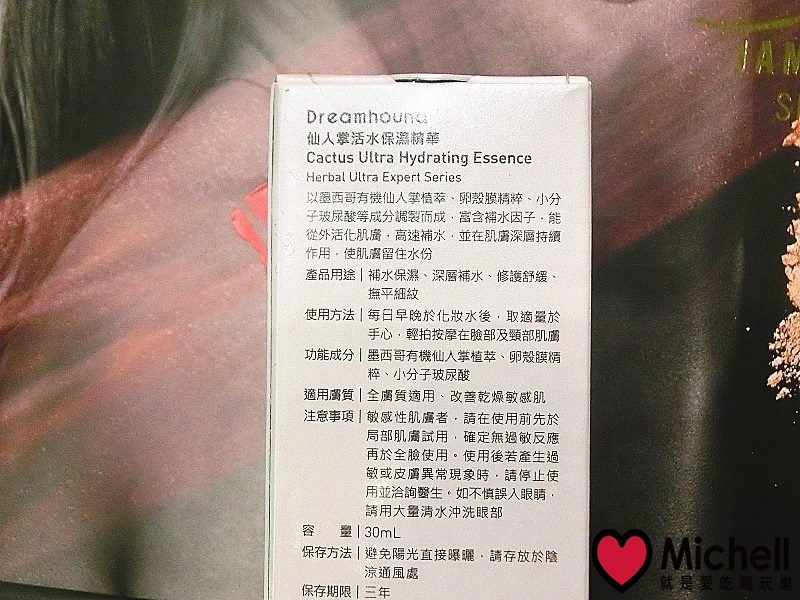 Dreamhound
仙人掌活水保濕精華
Cactus Ultra Hydrating Essence
Herbal Ultra Expert Series
以墨西哥有機仙人掌植萃、卵殼膜精粹、小分
子玻尿酸等成分調製而成，富含補水因子，能
從外活化肌膚，高速補水，並在肌膚深層持續
作用，使肌膚留住水份
產品用途｜補水保濕、深層補水、修護舒緩、
撫平細紋
使用方法｜每日早晚於化妝水後，取適量於
手心，輕拍按摩在臉部及頸部肌膚
功能成分｜墨西哥有機仙人掌植萃、卵殼膜精
粹、小分子玻尿酸
適用膚質｜全膚質適用、改善乾燥敏感肌
注意事項｜敏感性肌膚者，請在使用前先於
局部肌膚試用，確定無過敏反應
再於全臉使用。使用後若產生過
敏或皮膚異常現象時，請停止使
用並洽詢醫生。如不慎誤入眼睛，
請用大量清水沖洗眼部
容量｜30mL
保存方法｜避免陽光直接曝曬，請存放於陰
涼通風處
保存期限｜三年
Michell
就是愛吃喝玩樂